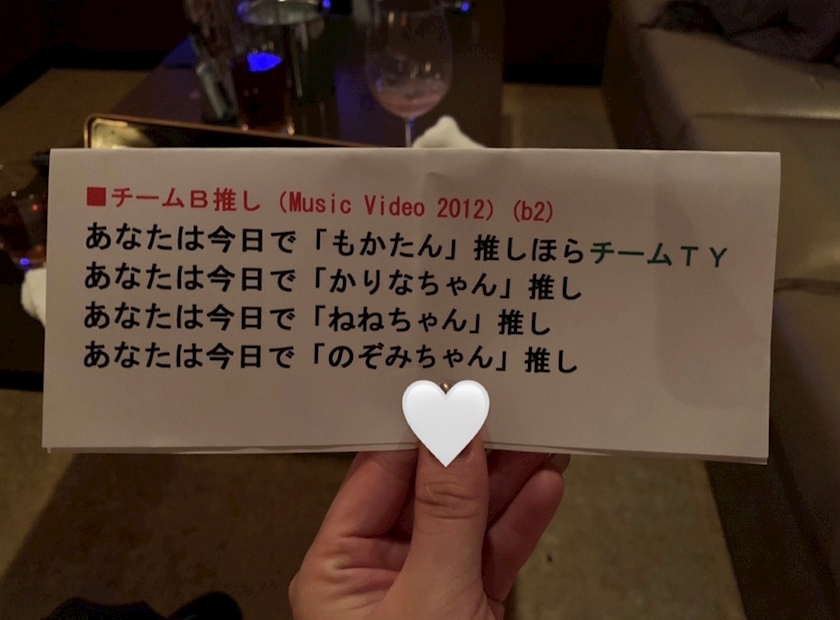 ■チームB推し (Music Video 2012) (b2)
あなたは今日で「もかたん」推しほらチームTY
あなたは今日で「かりなちゃん」推し
あなたは今日で「ねねちゃん」推し
あなたは今日で「のぞみちゃん」推し